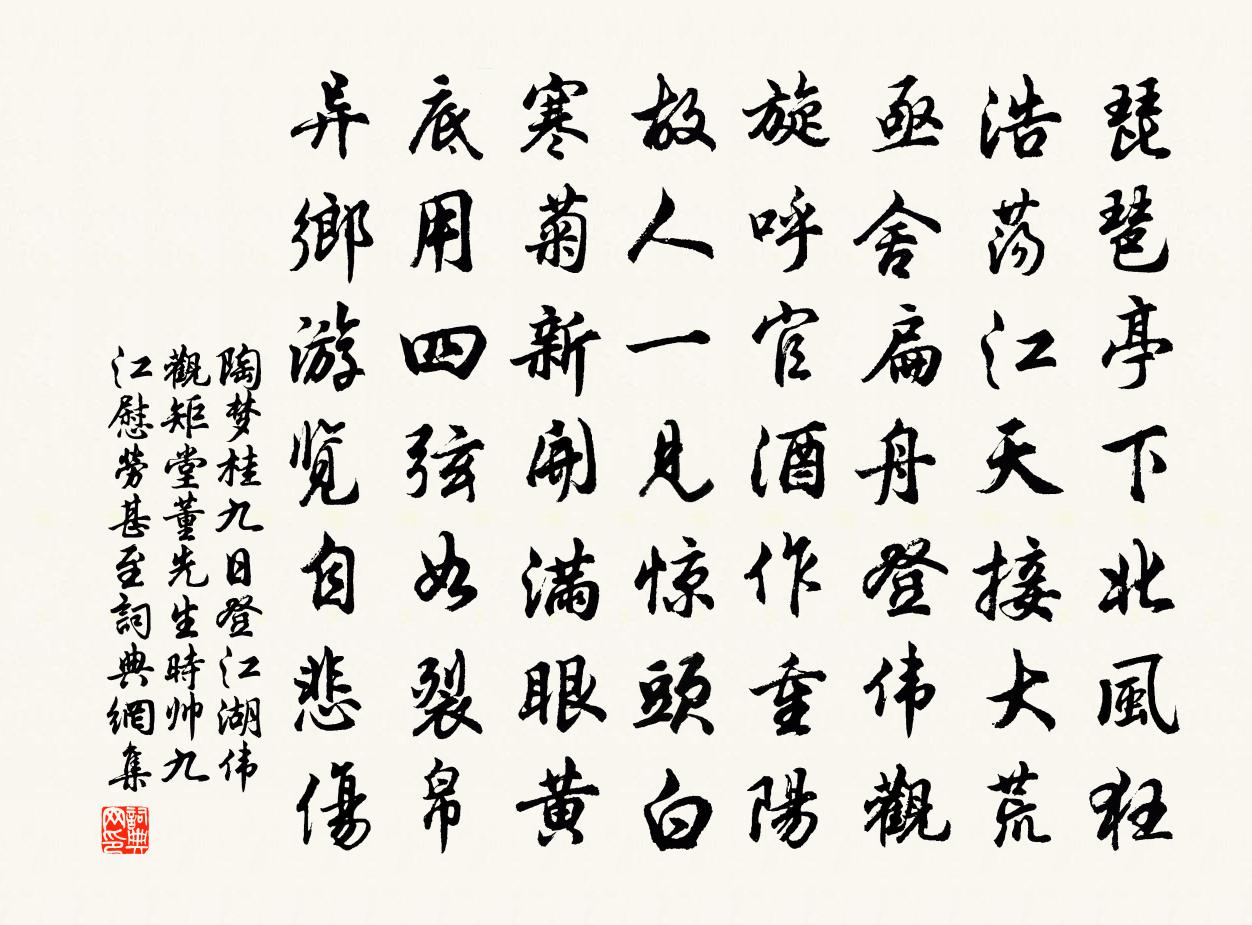 琵琶亭下北風狂
浩荡江天接大荒
亟舍扁舟登伟觀
旋呼官酒作重陽
故人一見惊頭白
寒菊新開满眼黄
底用四弦如裂帛
异鄉游览自悲傷
陶梦桂九日登江湖伟
觀矩堂董先生時帅九
江慰劳甚至詞典網集
詞典网印